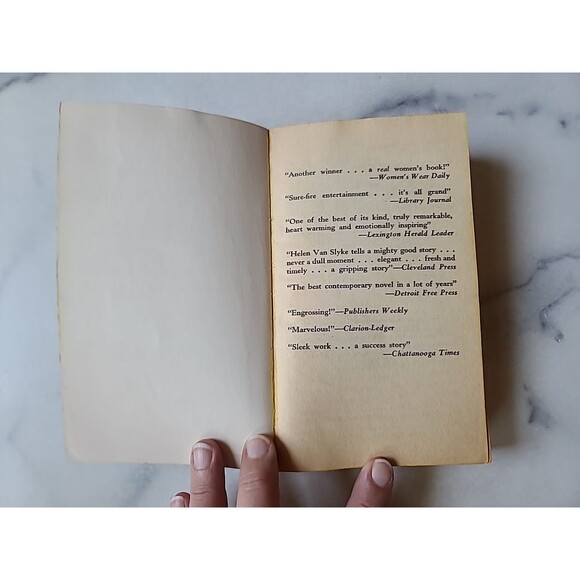 “Another winner . . . a real women’s book!”
—Women’s Wear Daily
“Sure-fire entertainment . . . it’s all grand”
—Library Journal
“One of the best of its kind, truly remarkable,
heart warming and emotionally inspiring”
—Lexington Herald Leader
“Helen Van Slyke tells a mighty good story . . .
never a dull moment . . . elegant . . . fresh and
timely . . . a gripping story”—Cleveland Press
“The best contemporary novel in a lot of years”
—Detroit Free Press
“Engrossing!”—Publishers Weekly
“Marvelous!”—Clarion-Ledger
“Sleek work . . . a success story”
—Chattanooga Times